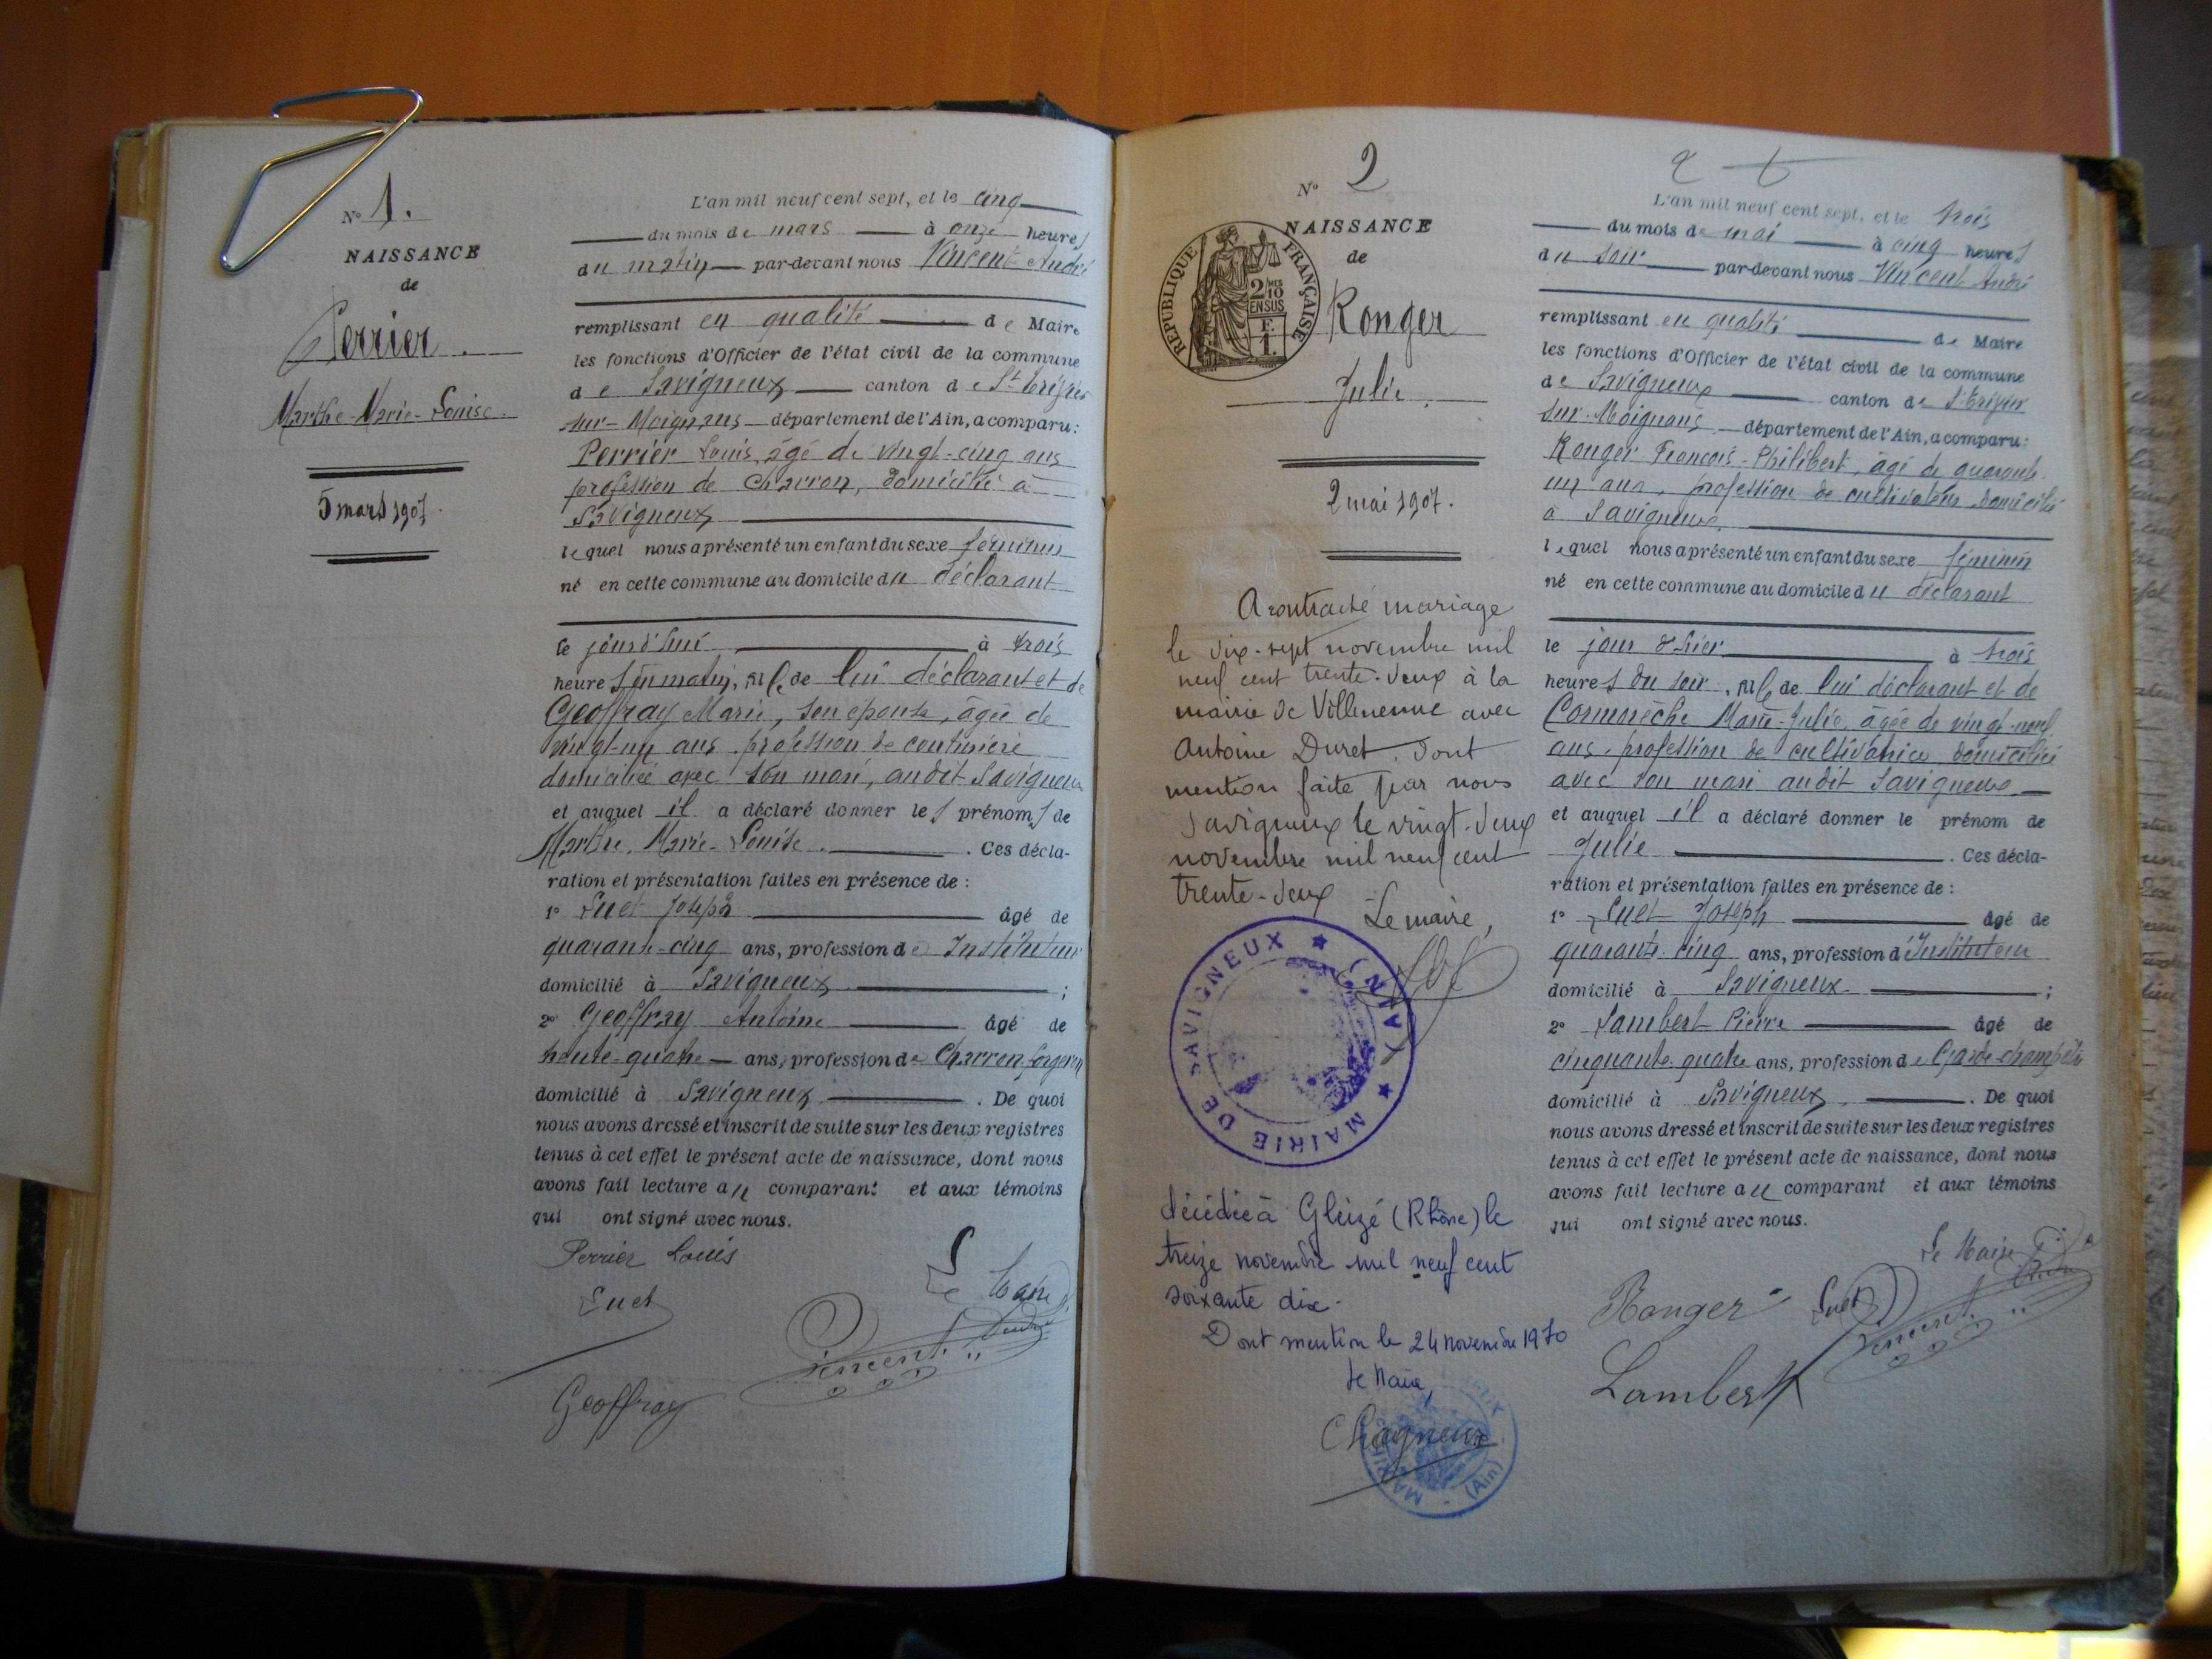 Nº 1.
NAISSANCE
de
Perrier.
Marthe-Marie-Louise.
5 mars 1907.
L'an mil neuf cent sept, et le cinq
du mois de mars à onze heures
du matin par-devant nous Vincent André
remplissant en qualité de Maire
les fonctions d'Officier de l'état civil de la commune
de Savigneux canton de St Trivier
sur-Moignans département de l'Ain, a comparu:
Perrier Louis, âgé de vingt-cinq ans
profession de charron, domicilié à
Savigneux
lequel nous a présenté un enfant du sexe féminin
né en cette commune au domicile du déclarant
le jourd'hui à trois
heures du matin, fille de lui déclarant et de
Geoffray Marie, son épouse, âgée de
vingt-un ans, profession de couturière
domiciliée avec son mari, audit Savigneux
et auquel il a déclaré donner les prénoms de
Marthe, Marie-Louise. Ces décla-
ration et présentation faites en présence de :
1º Suet Joseph âgé de
quarante-cinq ans, profession de Instituteur
domicilié à Savigneux ;
2º Geoffray Antoine âgé de
trente-quatre ans, profession de Charron-forgeron
domicilié à Savigneux. De quoi
nous avons dressé et inscrit de suite sur les deux registres
tenus à cet effet le présent acte de naissance, dont nous
avons fait lecture au comparant et aux témoins
qui ont signé avec nous.
Perrier Louis
Le Maire
Suet
Vincent André
Geoffray
Nº 2
NAISSANCE
de
RÉPUBLIQUE FRANÇAISE
2/10 EN SUS
Ronger
Julie.
2 mai 1907.
A contracté mariage
le dix-sept novembre mil
neuf cent trente-deux à la
mairie de Villeneuve avec
Antoine Duret. Dont
mention faite par nous
Savigneux le vingt-deux
novembre mil neuf cent
trente-deux
Le maire,
MAIRIE DE SAVIGNEUX (AIN)
décédée à Gleizé (Rhône) le
treize novembre mil neuf cent
soixante dix.
Dont mention le 24 novembre 1970
Le Maire,
Chagneux
MAIRIE (Ain)
L'an mil neuf cent sept, et le trois
du mois de mai à cinq heures
du soir par-devant nous Vincent André
remplissant en qualité de Maire
les fonctions d'Officier de l'état civil de la commune
de Savigneux canton de St Trivier
sur-Moignans département de l'Ain, a comparu:
Ronger François-Philibert, âgé de quarante
un ans, profession de cultivateur, domicilié
à Savigneux.
lequel nous a présenté un enfant du sexe féminin
né en cette commune au domicile du déclarant
le jour d'hier à trois
heures du soir, fille de lui déclarant et de
Cormorèche Marie-Julie, âgée de vingt-neuf
ans, profession de cultivatrice domiciliée
avec son mari audit Savigneux
et auquel il a déclaré donner le prénom de
Julie. Ces décla-
ration et présentation faites en présence de :
1º Suet Joseph âgé de
quarante cinq ans, profession d'Instituteur
domicilié à Savigneux ;
2º Lambert Pierre âgé de
cinquante-quatre ans, profession de Garde-champêtre
domicilié à Savigneux. De quoi
nous avons dressé et inscrit de suite sur les deux registres
tenus à cet effet le présent acte de naissance, dont nous
avons fait lecture au comparant et aux témoins
qui ont signé avec nous.
Le Maire
Ronger Suet Vincent André
Lambert